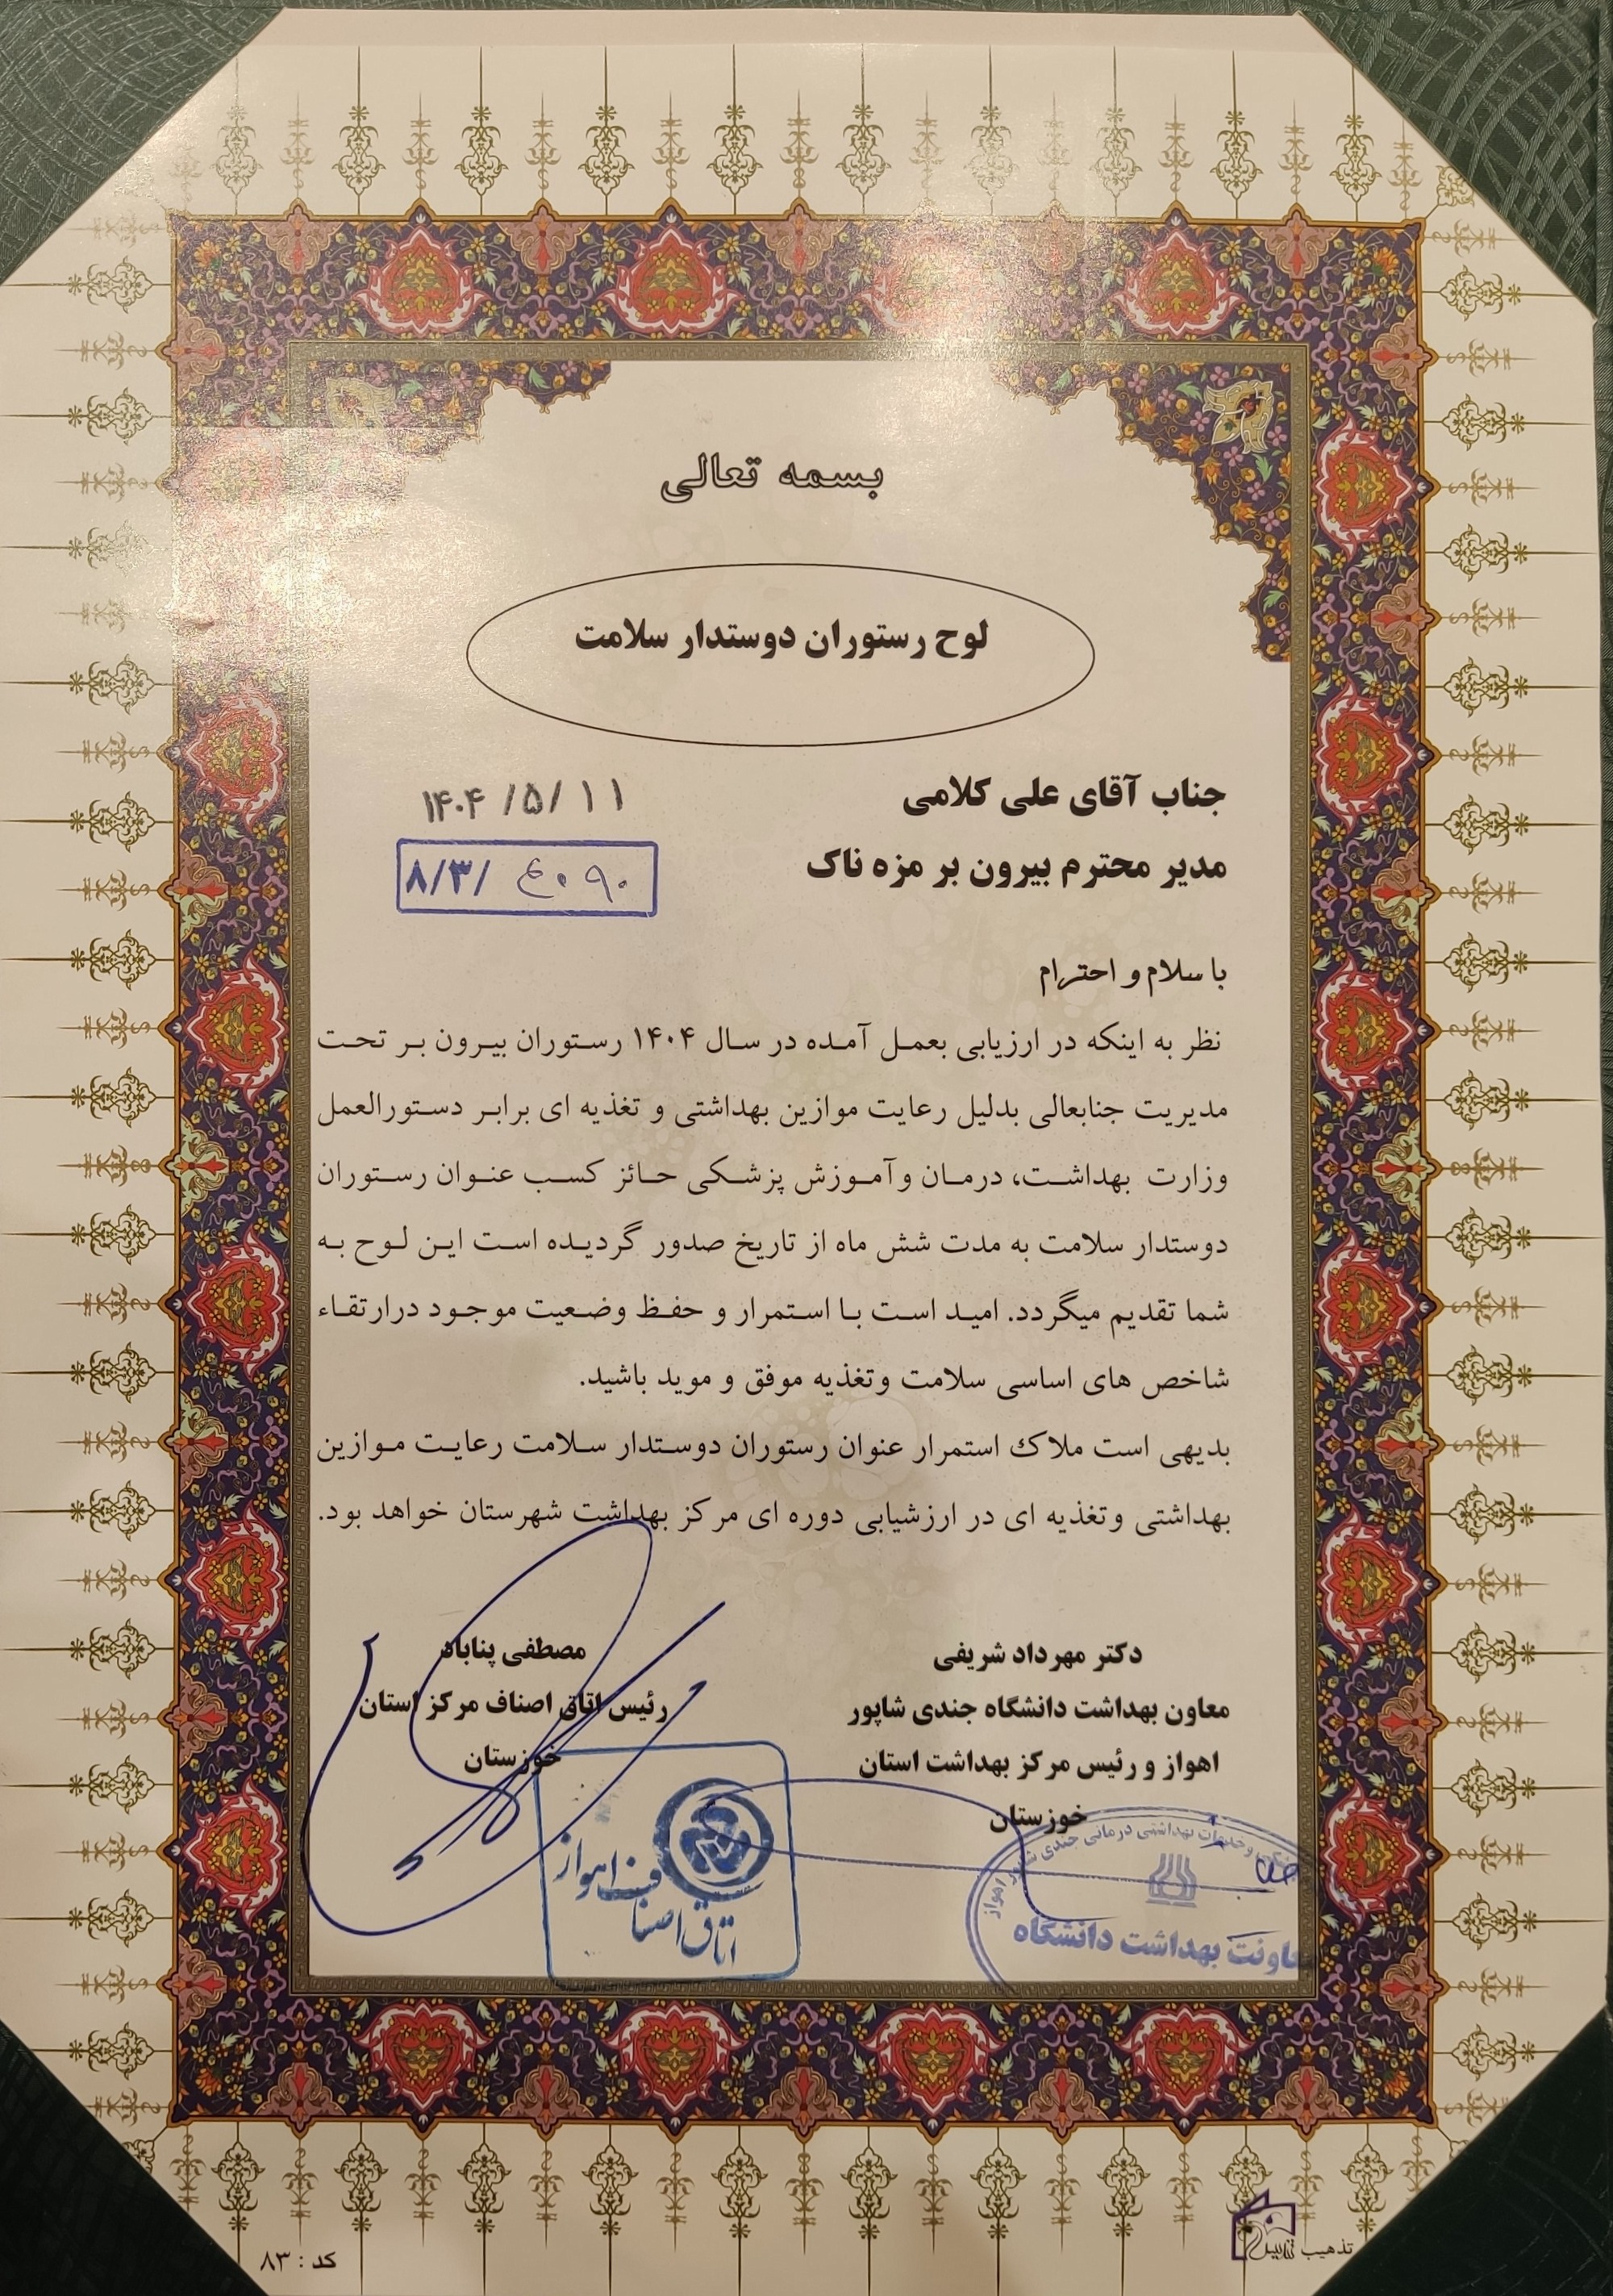 بسمه تعالی
لوح رستوران دوستدار سلامت
جناب آقای علی کلامی
۱۴۰۴ /۵/ ۱۱
مدیر محترم بیرون بر مزه ناک
۸/۳/ ۴۰۹۰
با سلام و احترام
نظر به اینکه در ارزیابی بعمل آمده در سال ۱۴۰۴ رستوران بیرون بر تحت
مدیریت جنابعالی بدلیل رعایت موازین بهداشتی و تغذیه ای برابر دستورالعمل
وزارت بهداشت، درمان و آموزش پزشکی حائز کسب عنوان رستوران
دوستدار سلامت به مدت شش ماه از تاریخ صدور گردیده است این لوح به
شما تقدیم میگردد. امید است با استمرار و حفظ وضعیت موجود درارتقاء
شاخص های اساسی سلامت وتغذیه موفق و موید باشید.
بدیهی است ملاک استمرار عنوان رستوران دوستدار سلامت رعایت موازین
بهداشتی وتغذیه ای در ارزشیابی دوره ای مرکز بهداشت شهرستان خواهد بود.
دکتر مهرداد شریفی
معاون بهداشت دانشگاه جندی شاپور
اهواز و رئیس مرکز بهداشت استان
خوزستان
مصطفی پناباد
رئیس اتاق اصناف مرکز استان
خوزستان
اتاق اصناف اهواز
وخدمات بهداشتی درمانی جندی شاپور اهواز
معاونت بهداشت دانشگاه
کد : ۸۳
تذهیب تندیس